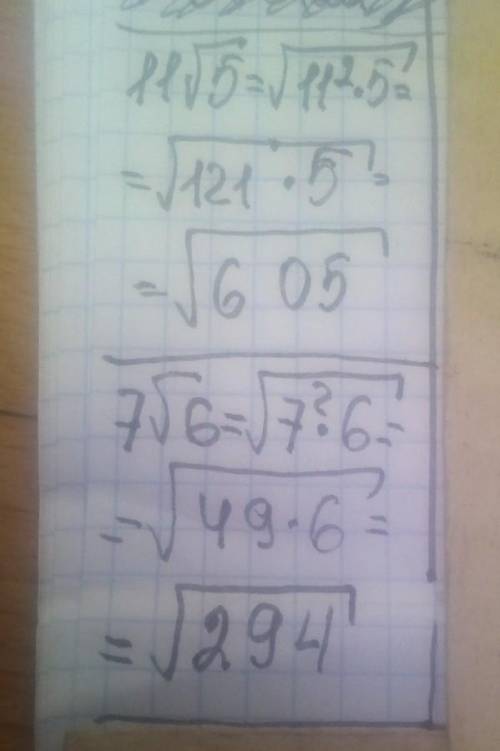 11√5=√11²·5=
=√121·5=
=√605
7√6=√7²·6=
=√49·6=
=√294